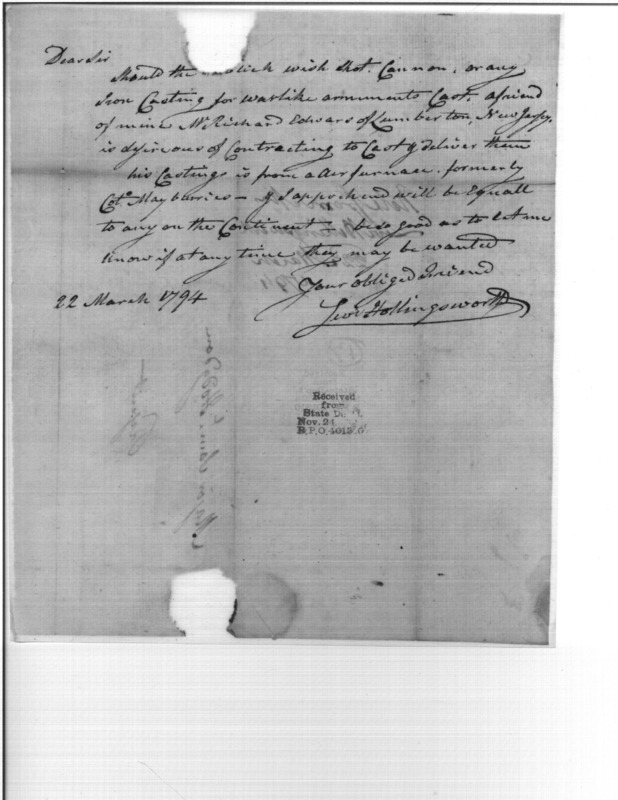 Dear Sir
Should the Publick wish Shot. Cannon, or any
Iron Casting for warlike armments Cast. a friend
of mine Mr Richard Edwars of Lumberton, New Jersey.
is desireous of Contracting to Cast & deliver them
his Castings is from a Air furnace. formerly
Colo. Mayburries — & I apprehend will be Equall
to any on the Continent — be so good as to let me
know if at any time they may be wanted
Your obliged Friend
22 March 1794
Levi Hollingsworth
Received
from
State De
Nov. 24
B.P.O. 4012
Major Samuel Hodgdon